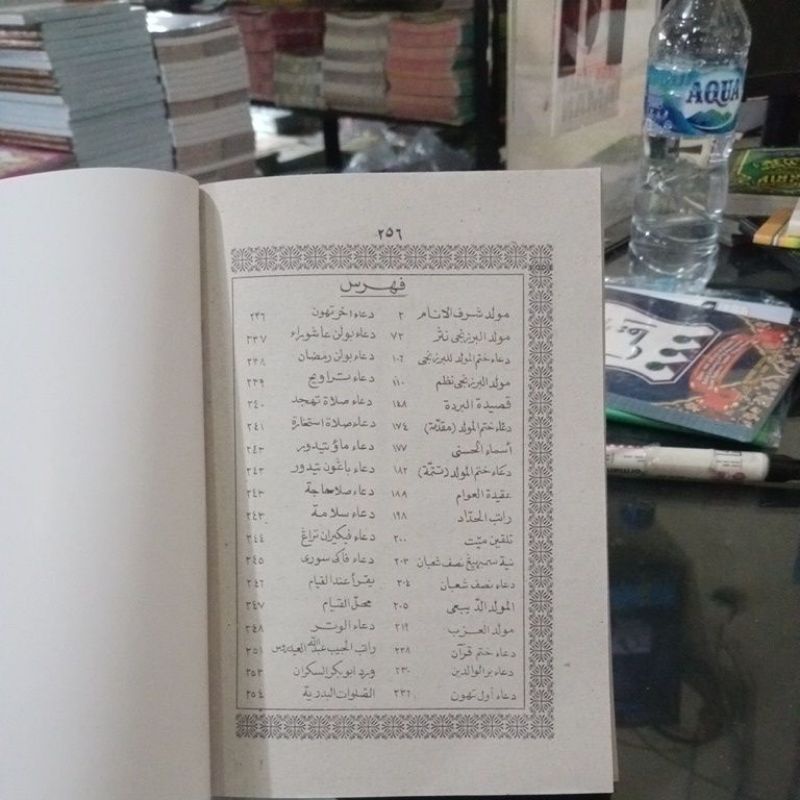 ٢٥٦
فهرس
مولد شرف الانام ٢
مولد البرزنجى نثر ٧٢
دعاء ختم المولد للبرزنجى ١٠٦
مولد البرزنجى نظم ١١٠
قصيدة البردة ١٤٨
دعاء ختم المولد (مقدّمة) ١٧٤
أسماء الحسنى ١٧٧
دعاء ختم المولد (تتمّة) ١٨٢
عقيدة العوام ١٨٩
راتب الحدّاد ١٩٨
تلقين ميّت ٢٠٠
نية سمبهيڠ نصف شعبان ٢٠٣
دعاء نصف شعبان ٢٠٤
المولد الدّيبعى ٢٠٥
مولد العزب ٢١٩
دعاء ختم قرآن ٢٢٨
دعاء برالوالدين ٢٣٠
دعاء أول تهون ٢٣٦
دعاء اخر تهون ٢٣٦
دعاء بولن عاشوراء ٢٣٧
دعاء بولن رمضان ٢٣٨
دعاء تراويح ٢٣٩
دعاء صلاة تهجد ٢٤٠
دعاء صلاة استخارة ٢٤١
دعاء ماؤ تيدور ٢٤٣
دعاء باڠون تيدور ٢٤٣
دعاء صلاحاجة ٢٤٣
دعاء سلامة ٢٤٣
دعاء فيكيران تراڠ ٢٤٤
دعاء فاكى سورى ٢٤٥
يقرأ عند القيام ٢٤٦
محلّ القيام ٢٤٧
دعاء الوتر ٢٤٨
راتب الحبيب عبدالله العيدروس ٢٥١
ورد ابوبكر السكران ٢٥٣
الصّلوات البدرية ٢٥٤
AQUA